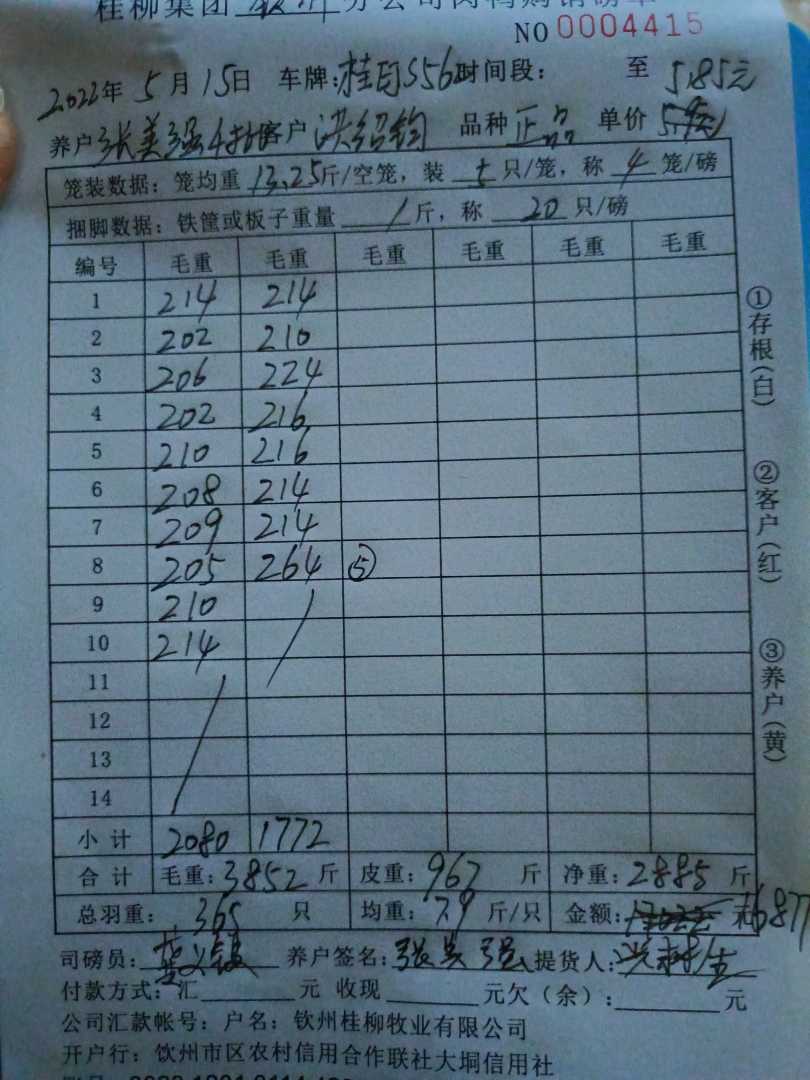 桂柳集团 分公司肉鸭购销磅单
NO 0004415
2022年 5月 15日 车牌:桂 时间段: 至 5.85元
养户 张美强 客户 洪绍钧 品种 正品 单价
笼装数据: 笼均重 13.25斤/空笼, 装 5 只/笼, 称 4 笼/磅
捆脚数据: 铁筐或板子重量 1 斤, 称 20 只/磅
编号 毛重 毛重 毛重 毛重 毛重 毛重
1 214 214
2 202 210
3 206 224
4 202 216
5 210 216
6 208 214
7 209 214
8 205 264 ⑤
9 210
10 214
11
12
13
14
小计 2080 1772
合计 毛重: 3852 斤 皮重: 967 斤 净重: 2885 斤
总羽重: 365 只 均重: 7.9 斤/只 金额: 元 16877
司磅员: 养户签名: 张美强 提货人:
付款方式: 汇 元 收现 元 欠(余): 元
公司汇款帐号: 户名: 钦州桂柳牧业有限公司
开户行: 钦州市区农村信用合作联社大垌信用社
①存根(白)
②客户(红)
③养户(黄)